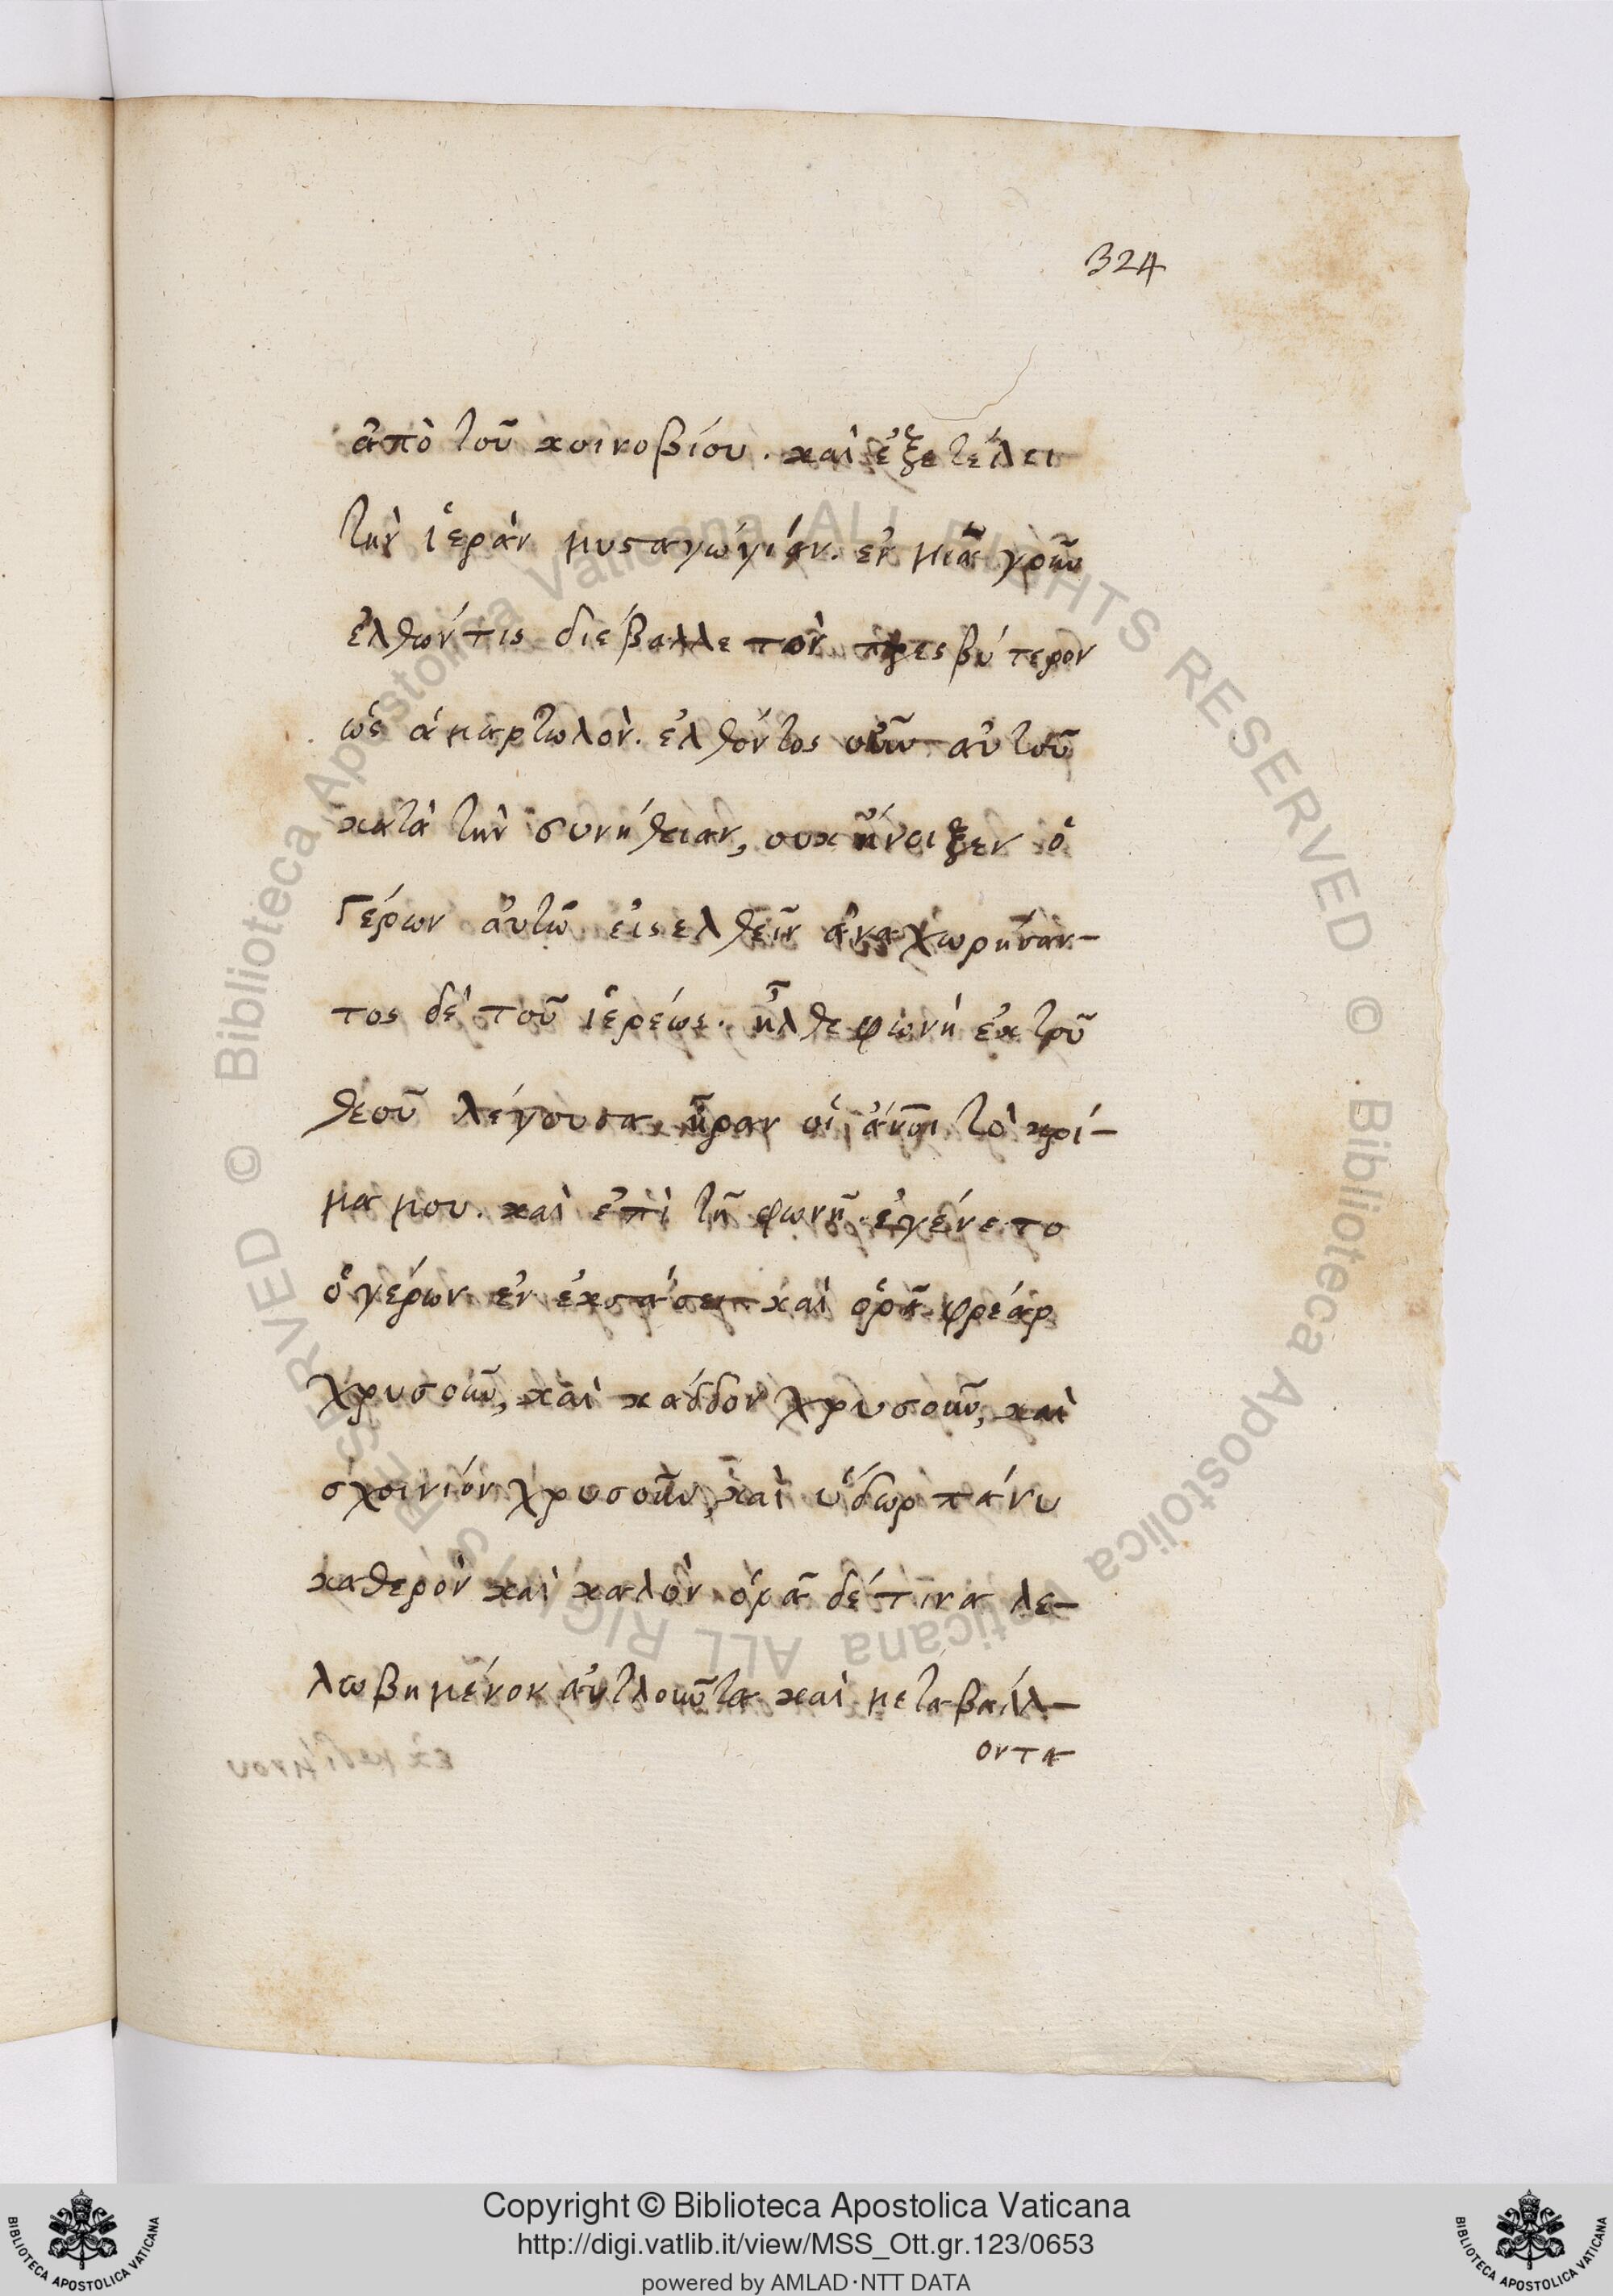 324
ἀπὸ τοῦ κοινοβίου. καὶ ἐξετέλει
τὴν ἱερὰν μυσταγωγίαν. ἐν μιᾷ γοῦν
ἐλθών τις διέβαλλε τὸν πρεσβύτερον
ὡς ἁμαρτωλὸν. ἐλθόντος οὖν αὐτοῦ
κατὰ τὴν συνήθειαν, ουκ ἤνοιξεν ὁ
Γέρων ἀυτῶ εἰσελθεῖν ἀναχωρήσαν-
τος δὲ τοῦ ἱερέως. ἦλθε φωνὴ ἐκ τοῦ
θεοῦ λέγουσα, ἦραν οἱ ἄνοι τὸ κρί-
μα μου. καὶ ἐπὶ τῆ φωνῆ ἐγένετο
ὁ γέρων ἐν ἐκστάσει καὶ ὁρᾶ φρέαρ
χρυσοῦν, καὶ κάδδον χρυσοῦν, καὶ
σχοινίον χρυσοῦν, καὶ ὕδωρ πάνυ
καθερὸν καὶ καλὸν ὁρᾶ δέ τινα λε-
λωβημένον ἀντλοῦντα καὶ μεταβάλλ-
οντα
Copyright © Biblioteca Apostolica Vaticana
http://digi.vatlib.it/view/MSS_Ott.gr.123/0653
powered by AMLAD·NTT DATA
BIBLIOTECA APOSTOLICA VATICANA
BIBLIOTECA APOSTOLICA VATICANA
© Biblioteca Apostolica Vaticana ALL RIGHTS RESERVED © Biblioteca Apostolica Vaticana ALL RIGHTS RESERVED